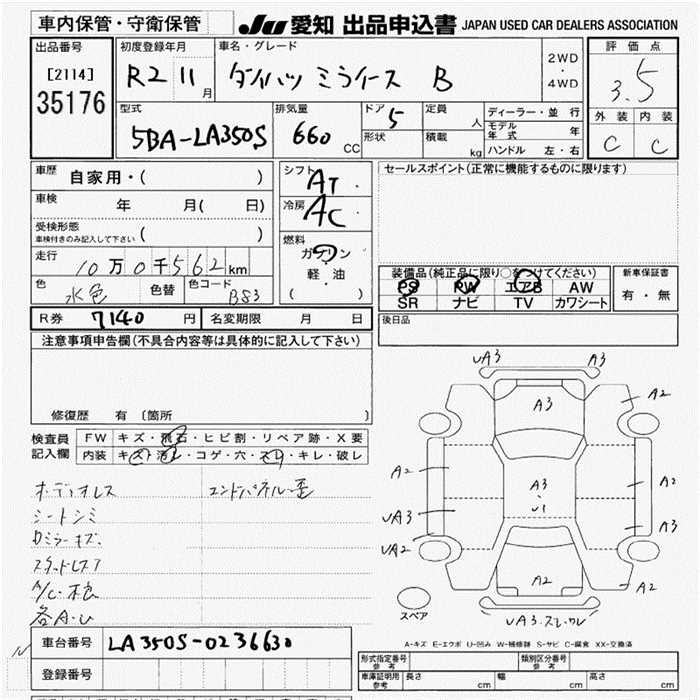 車内保管・守衛保管 JU 愛知 出品申込書 JAPAN USED CAR DEALERS ASSOCIATION
出品番号 初度登録年月 車名・グレード 評価点
[2114] R2 11月 ダイハツ ミライース B 2WD・4WD 3.5
35176 型式 排気量 ドア 5 定員 人 ディーラー・並行 外装 内装
5BA-LA350S 660 CC 形状 積載 kg モデル年式 年 C C
ハンドル 左・右
車歴 自家用・( ) シフト AT・ セールスポイント(正常に機能するものに限ります)
車検 年 月( 日) 冷房 AC・
受検形態 車検付きのみ記入して下さい ( ) 燃料 ガソリン
走行 10万0千562km 軽・油 装備品(純正品に限り○をつけてください) 新車保証書
色 水色 色替 色コード B83 ( ) PS PW エアB AW 有・無
SR ナビ TV カワシート
R券 7140 円 名変期限 月 日 後日品
注意事項申告欄(不具合内容等は具体的に記入して下さい)
修復歴 有 〔箇所 〕
検査員記入欄 FW キズ・飛石・ヒビ割・リペア跡・X要
内装 キズ・汚レ・コゲ・穴・スレ・キレ・破レ
オーディオレス エンドパネル歪
シートシミ
ミラーキズ
スタッドレス
各A・U
UA3 A3
A3 A2
A2 A3・U1 A2
UA3 A3
UA2 A2 A2
スペア UA3・スレ・ワレ
車台番号 LA350S-0236630
登録番号
A-キズ E-エクボ U-凹み W-補修跡 S-サビ C-腐食 XX-交換済
形式指定番号 参考 類別区分番号 参考
車庫証明用 参考 長さ cm 幅 cm 高さ cm